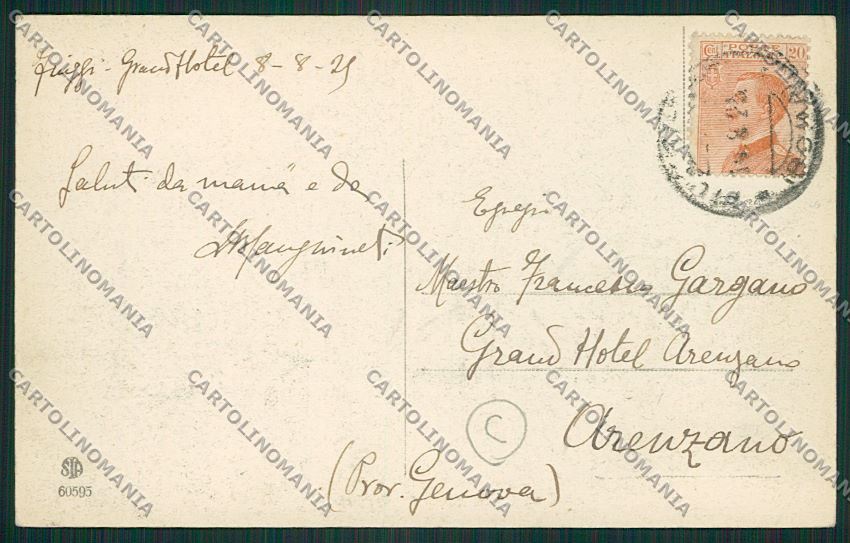 Fiuggi - Grand Hotel 8-8-25
Saluti da mamà e da
Sanguineti
Egregio
Maestro Francesco Gargano
Grand Hotel Arenzano
Arenzano
(Prov. Genova)
C
POSTE
Cent. 20
STA
60595
CARTOLINOMANIA